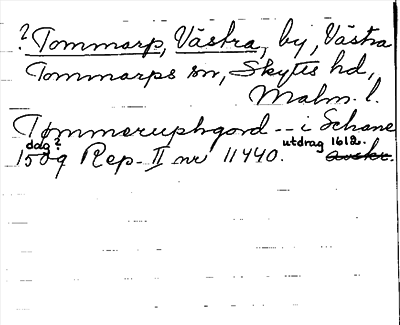 ? Tommarp, Västra, by, Västra
Tommarps sn, Skytts hd,
Malm. l.
Tommeruphgord -- i Schane
dag? utdrag 1612.
1509 Rep. II nr 11440. Avskr.